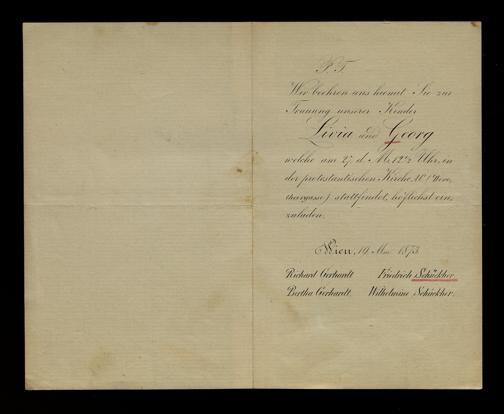 P. T.
Wir beehren uns hiemit Sie zur
Trauung unserer Kinder
Livia und Georg
welche am 27. d. M. 12½ Uhr, in
der protestantischen Kirche, (Doro-
theergasse) stattfindet, höflichst ein-
zuladen.
Wien, 19. 1873.
Richard Gerhardt Friedrich Schückher
Bertha Gerhardt. Wilhelmine Schückher.